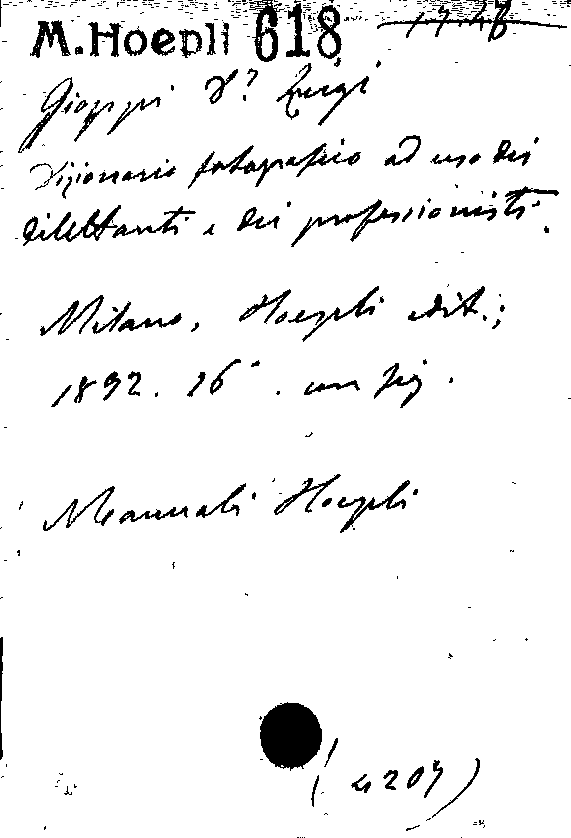 M. Hoepli 618
Gioppi Dr Luigi
Dizionario fotografico ad uso dei
dilettanti e dei professionisti.
Milano, Hoepli edit.;
1892. 16°. con fig.
Manuali Hoepli
(4209)